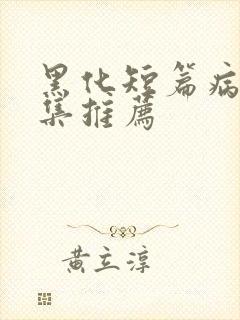 黑化短篇病
集推薦
黃立淳